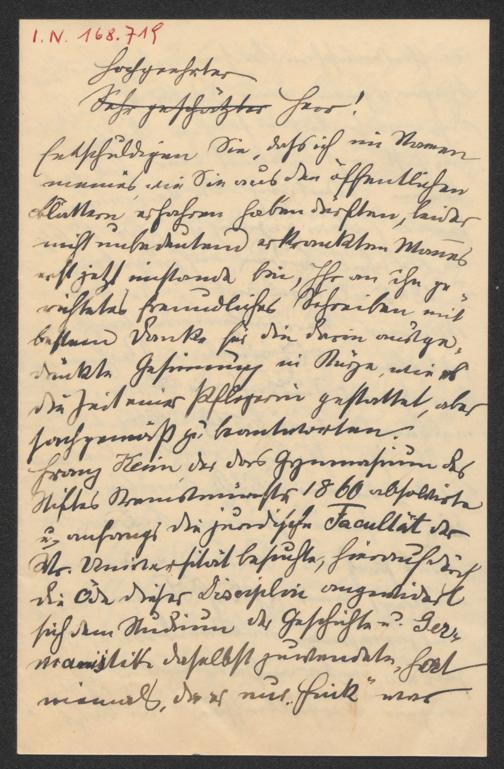 I. N. 168.719
Hochgeehrter
Sehr geschätzter Herr!
Entschuldigen Sie, daß ich im Namen
meines, wie Sie aus den öffentlichen
Blättern erfahren haben dürften, leider
nicht unbedeutend erkrankten Mannes
erst jetzt imstande bin, Ihr an ihn ge-
richtetes freundliches Schreiben mit
bestem Danke für die darin ausge-
drückte Gesinnung in Kürze, wie es
die Zeit einer Pflegerin gestattet, aber
sachgemäß zu beantworten.
Franz Keim der das Gymnasium des
Stiftes Kremsmünster 1860 absolvirte
u. anfangs die juridische Facultät der
Wr. Universität besuchte, hierauf durch
die Öde dieser Disciplin angewidert
sich dem Studium der Geschichte u. Ger-
manistik daselbst zuwendete, hat
niemals, da er nur "Fink" war